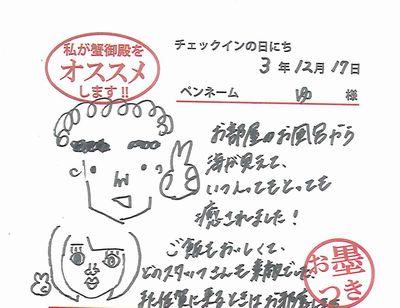 私が蟹御殿を
オススメ
します!!
チェックインの日にち
3年12月17日
ペンネーム ゆ 様
お部屋のお風呂から
海が見えて、
いつ入ってもとっても
癒されました！
ご飯もおいしくて、
どのスタッフさんも素敵でした。
に来るときはお部屋
お墨
つき